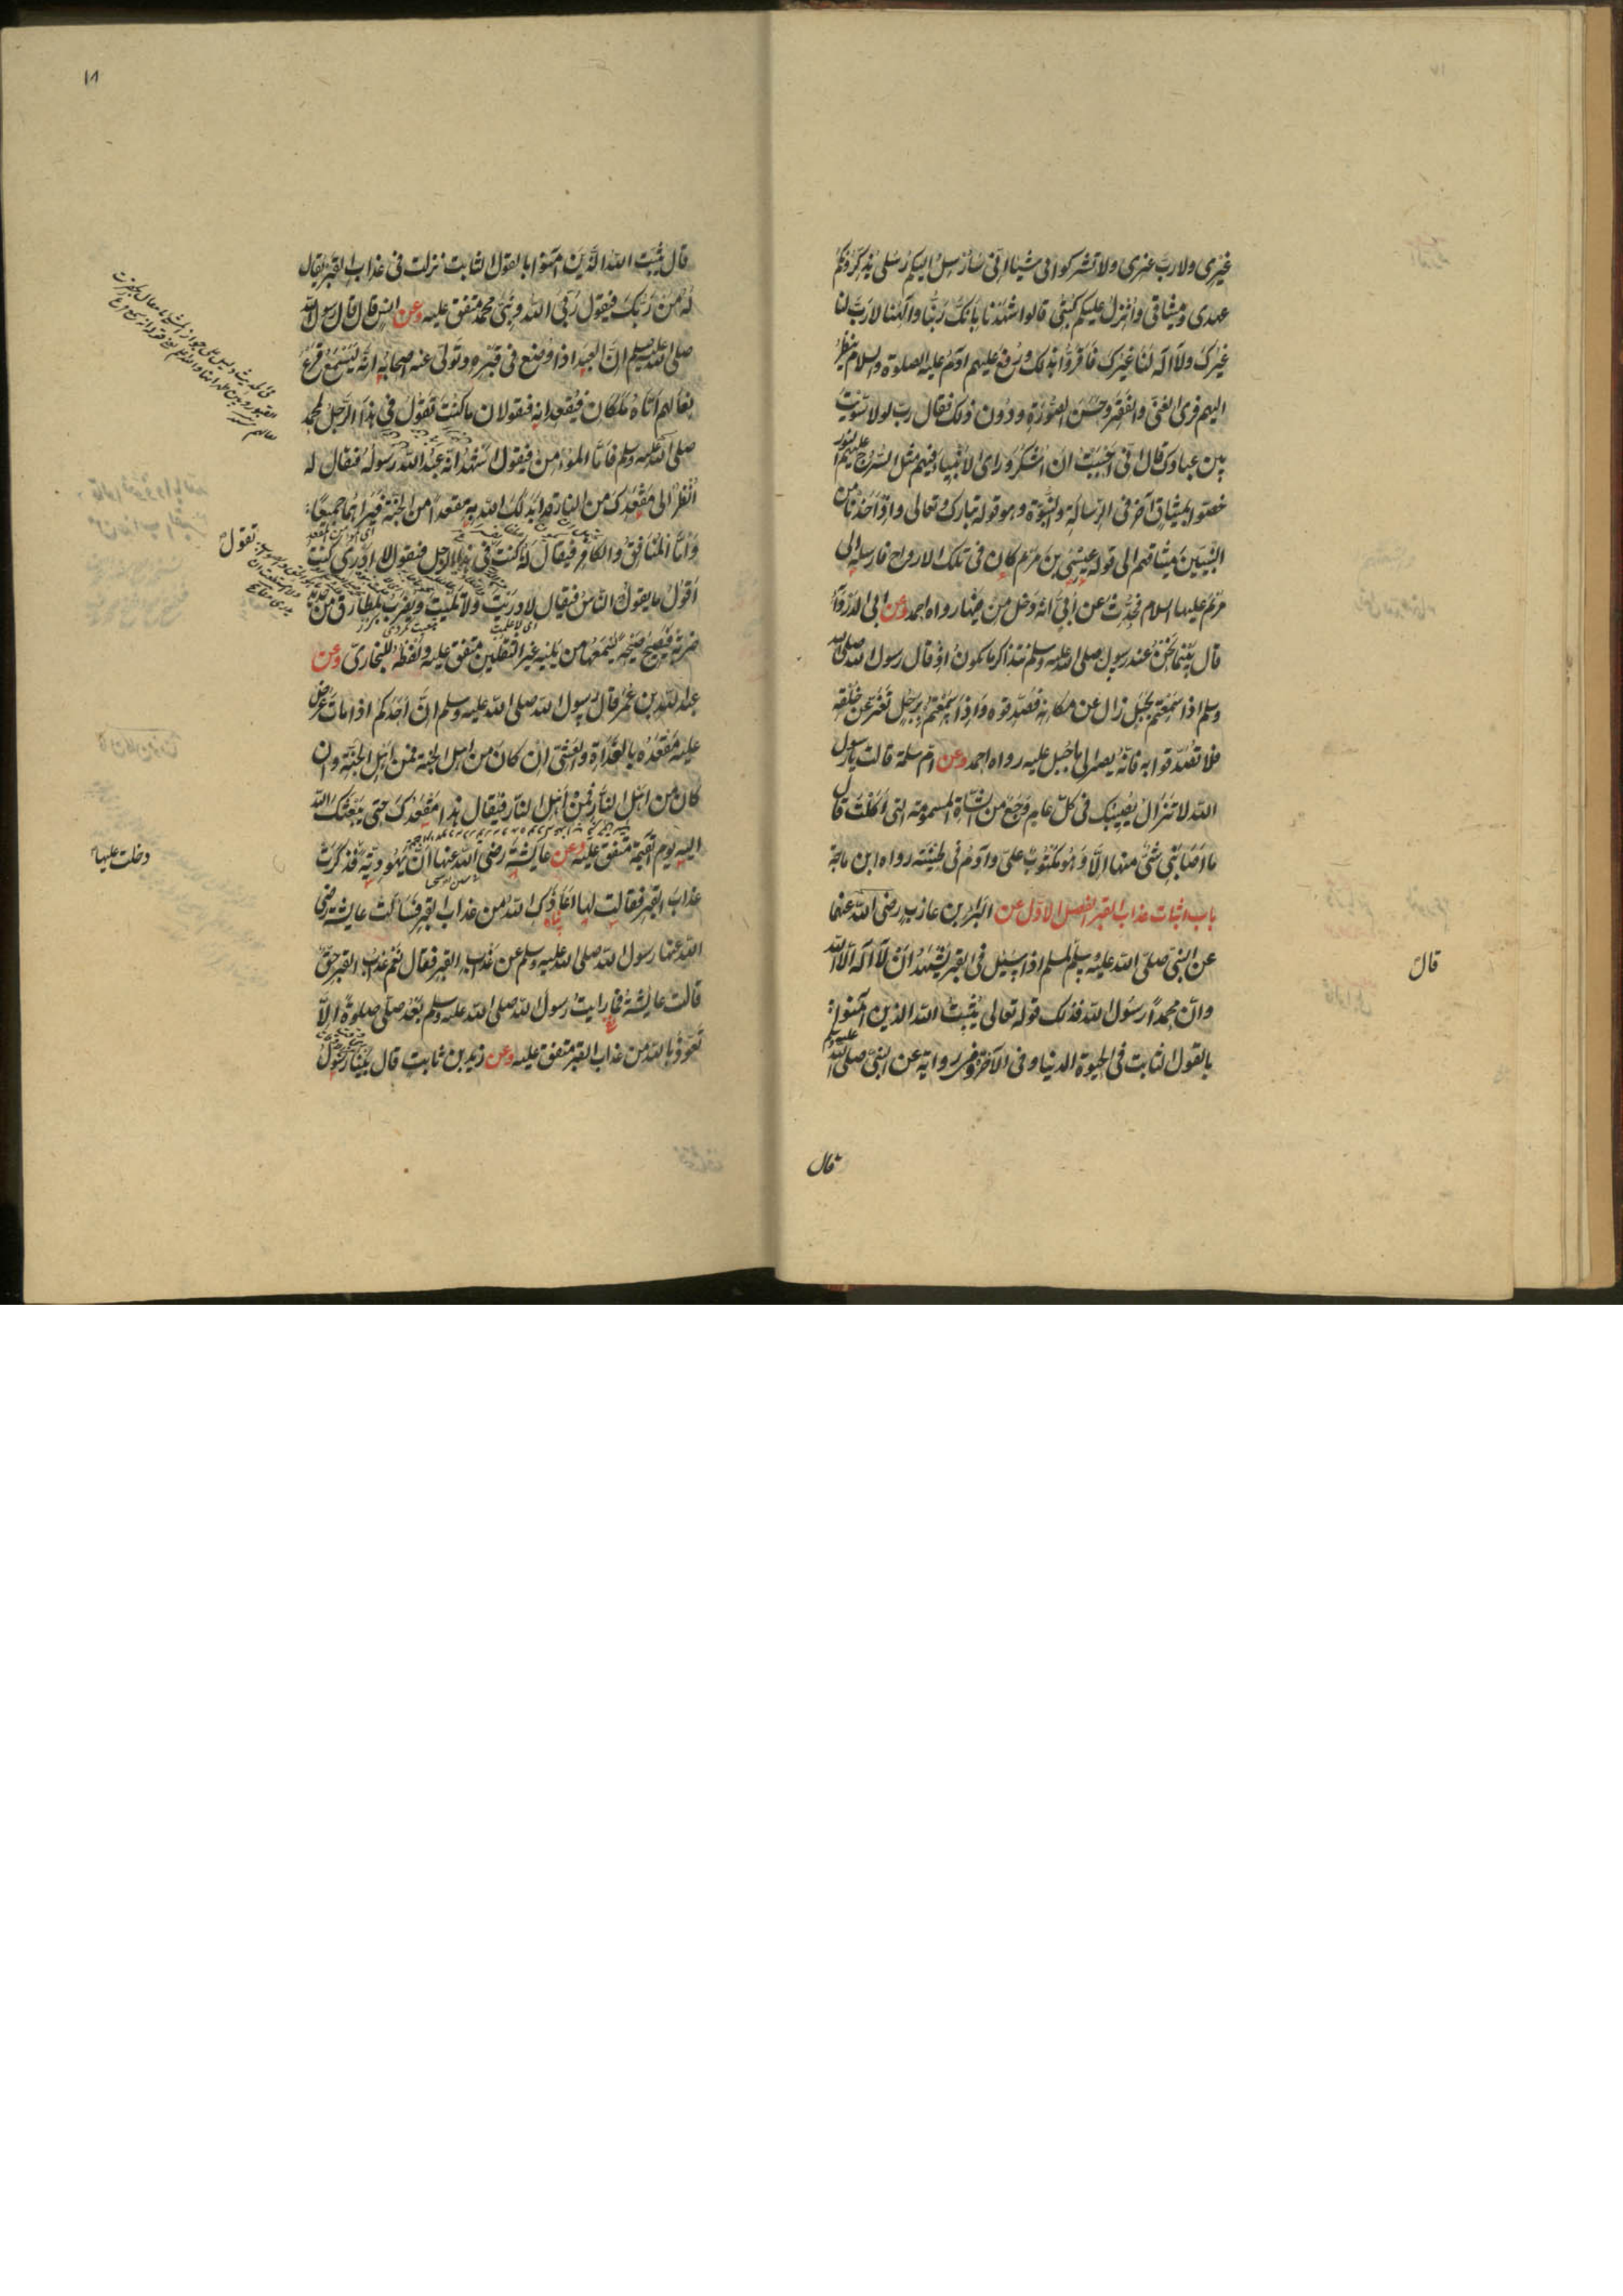 غيرى ولا ربّ غيرى ولا تشركوا بى شيئا انى سارسل اليكم رسلى يذكرونكم
عهدى وميثاقى وانزل عليكم كتبى قالوا شهدنا بانك ربنا والهنا لا ربّ لنا
غيرك ولا اله لنا غيرك فاقروا بذلك ورفع عليهم آدم عليه الصلوة والسلام ينظر
اليهم فرى الغنى والفقير وحسن الصورة ودون ذلك فقال ربّ لولا سويت
بين عبادك قال انى احببت ان اشكر وراى الانبياء فيهم مثل السرج عليهم النور
خصوا بميثاق آخر فى الرسالة والنبوة وهو قوله تبارك وتعالى واذ اخذنا من
النبيين ميثاقهم الى قوله عيسى بن مريم كان فى تلك الارواح فارسله الى
مريم عليها السلام فحدث عن أبىّ انه دخل من فيها رواه احمد وعن ابى الدرداء
قال بينما نحن عند رسول الله صلى الله عليه وسلم نتذاكر ما يكون اذ قال رسول الله صلى الله
وسلم اذا سمعتم بجبل زال عن مكانه فصدقوه واذا سمعتم برجل تغير عن خلقه
فلا تصدقوا به فانه يصير الى ما جبل عليه رواه احمد وعن ام سلمة قالت يا رسول
الله لا تزال يصيبك فى كل عام وجع من الشاة المسمومة التى اكلت قال
ما اصابنى شئ منها الا وهو مكتوب علىّ وآدم فى طينته رواه ابن ماجة
باب اثبات عذاب القبر الفصل الاول عن البراء بن عازب رضى الله عنهما
عن النبى صلى الله عليه وسلم المسلم اذا سئل فى القبر يشهد ان لا اله الا الله
وان محمدا رسول الله فذلك قوله تعالى يثبت الله الذين آمنوا
بالقول الثابت فى الحيوة الدنيا وفى الآخرة وفى رواية عن النبى صلى الله عليه وسلم
قال
قال
١٨
قال يثبت الله الذين آمنوا بالقول الثابت نزلت فى عذاب القبر يقال
له من ربك فيقول ربى الله ونبيى محمد متفق عليه وعن انس قال قال رسول الله
صلى الله عليه وسلم ان العبد اذا وضع فى قبره وتولى عنه اصحابه انه ليسمع قرع
نعالهم اتاه ملكان فيقعدانه فيقولان ما كنت تقول فى هذا الرجل لمحمد
صلى الله عليه وسلم فاما المؤمن فيقول اشهد انه عبد الله ورسوله فيقال له
انظر الى مقعدك من النار قد ابدلك الله به مقعدا من الجنة فيراهما جميعا
واما المنافق والكافر فيقال له ما كنت تقول فى هذا الرجل فيقول لا ادرى كنت
اقول ما يقول الناس فيقال لا دريت ولا تليت ويضرب بمطارق من حديد
ضربة فيصيح صيحة يسمعها من يليه غير الثقلين متفق عليه ولفظه للبخارى وعن
عبد الله بن عمر قال قال رسول الله صلى الله عليه وسلم ان احدكم اذا مات عرض
عليه مقعده بالغداة والعشى ان كان من اهل الجنة فمن اهل الجنة وان
كان من اهل النار فمن اهل النار فيقال هذا مقعدك حتى يبعثك الله
اليه يوم القيمة متفق عليه وعن عايشة رضى الله عنها ان يهودية فذكرت
دخلت عليها
عذاب القبر فقالت لها اعاذك الله من عذاب القبر فسالت عايشة رضى
الله عنها رسول الله صلى الله عليه وسلم عن عذاب القبر فقال نعم عذاب القبر حق
قالت عايشة فما رايت رسول الله صلى الله عليه وسلم بعد صلى صلوة الا
تعوذ بالله من عذاب القبر متفق عليه وعن زيد بن ثابت قال بينا رسول